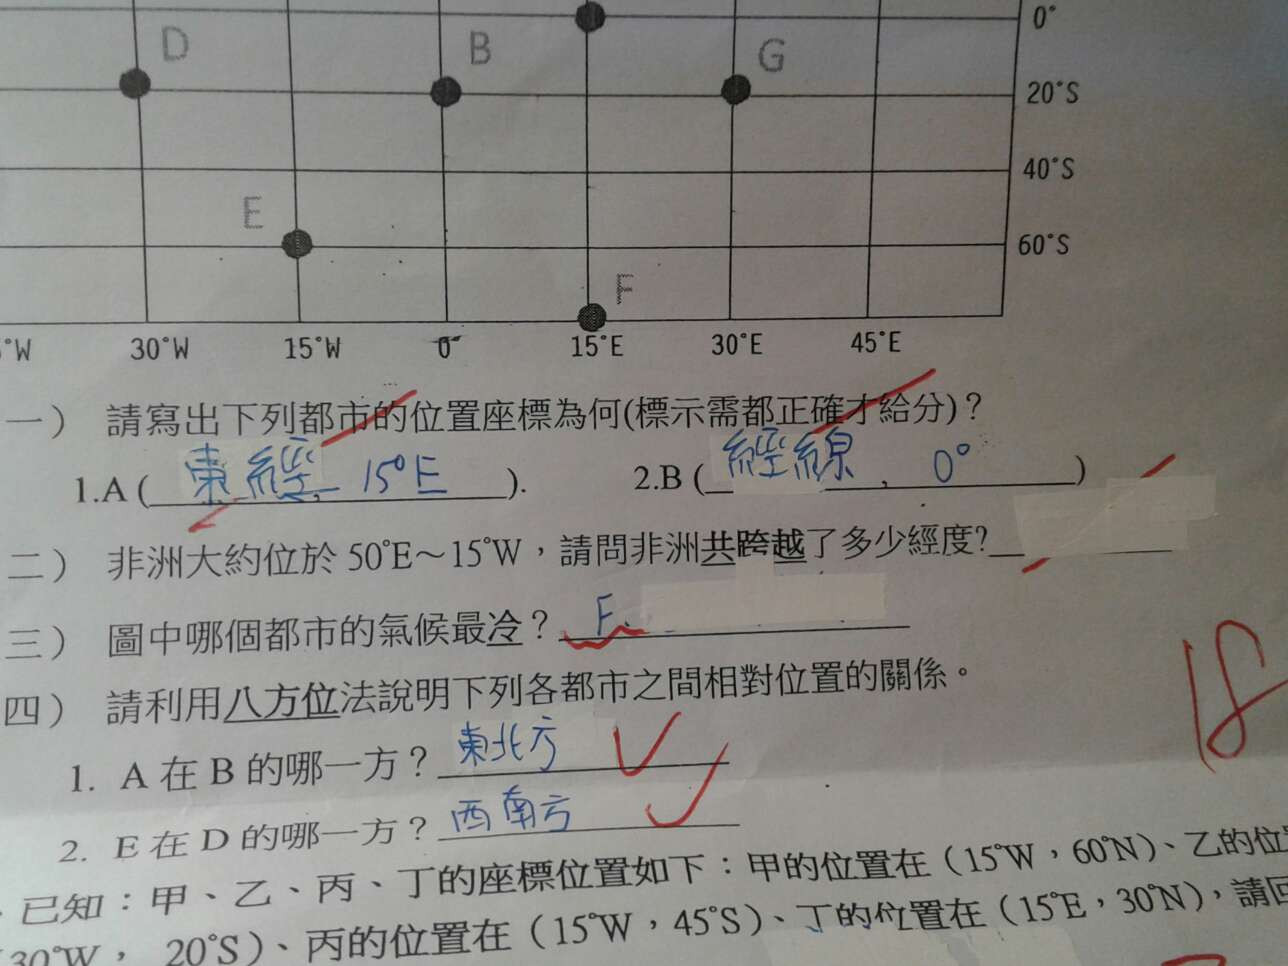 0°
D B G
20°S
40°S
E
60°S
F
°W 30°W 15°W 0° 15°E 30°E 45°E
一） 請寫出下列都市的位置座標為何(標示需都正確才給分)？
1.A ( 東經, 15°E ). 2.B ( 經線, 0° )
二） 非洲大約位於 50°E～15°W，請問非洲共跨越了多少經度?
三） 圖中哪個都市的氣候最冷？ F.
四） 請利用八方位法說明下列各都市之間相對位置的關係。
18
1. A 在 B 的哪一方？ 東北方
2. E 在 D 的哪一方？ 西南方
、已知：甲、乙、丙、丁的座標位置如下：甲的位置在（15°W，60°N）、乙的位置
（30°W， 20°S）、丙的位置在（15°W，45°S）、丁的位置在（15°E，30°N），請回